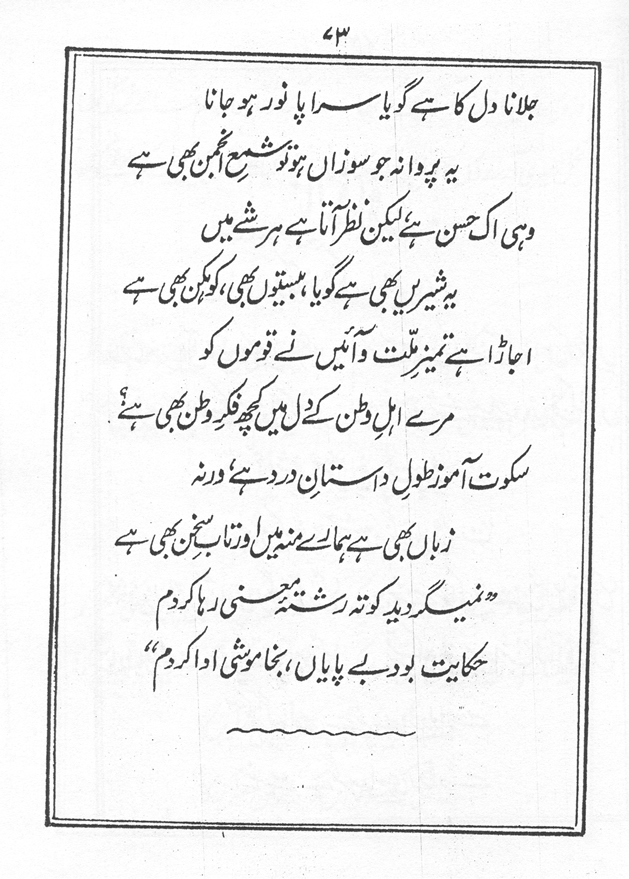 ۷۳
جلانا دل کا ہے گویا سراپا نور ہو جانا
یہ پروانہ جو سوزاں ہو تو شمعِ انجمن بھی ہے
وہی اک حسن ہے، لیکن نظر آتا ہے ہر شے میں
یہ شیریں بھی ہے گویا، بیستوں بھی، کوہکن بھی ہے
اجاڑا ہے تمیزِ ملّت و آئیں نے قوموں کو
مرے اہلِ وطن کے دل میں کچھ فکرِ وطن بھی ہے؟
سکوت آموز طولِ داستانِ درد ہے، ورنہ
زباں بھی ہے ہمارے منہ میں اور تابِ سخن بھی ہے
”نمیگردید کوتہ رشتۂ معنی رہا کردم
حکایت بود بے پایاں، بخاموشی ادا کردم“